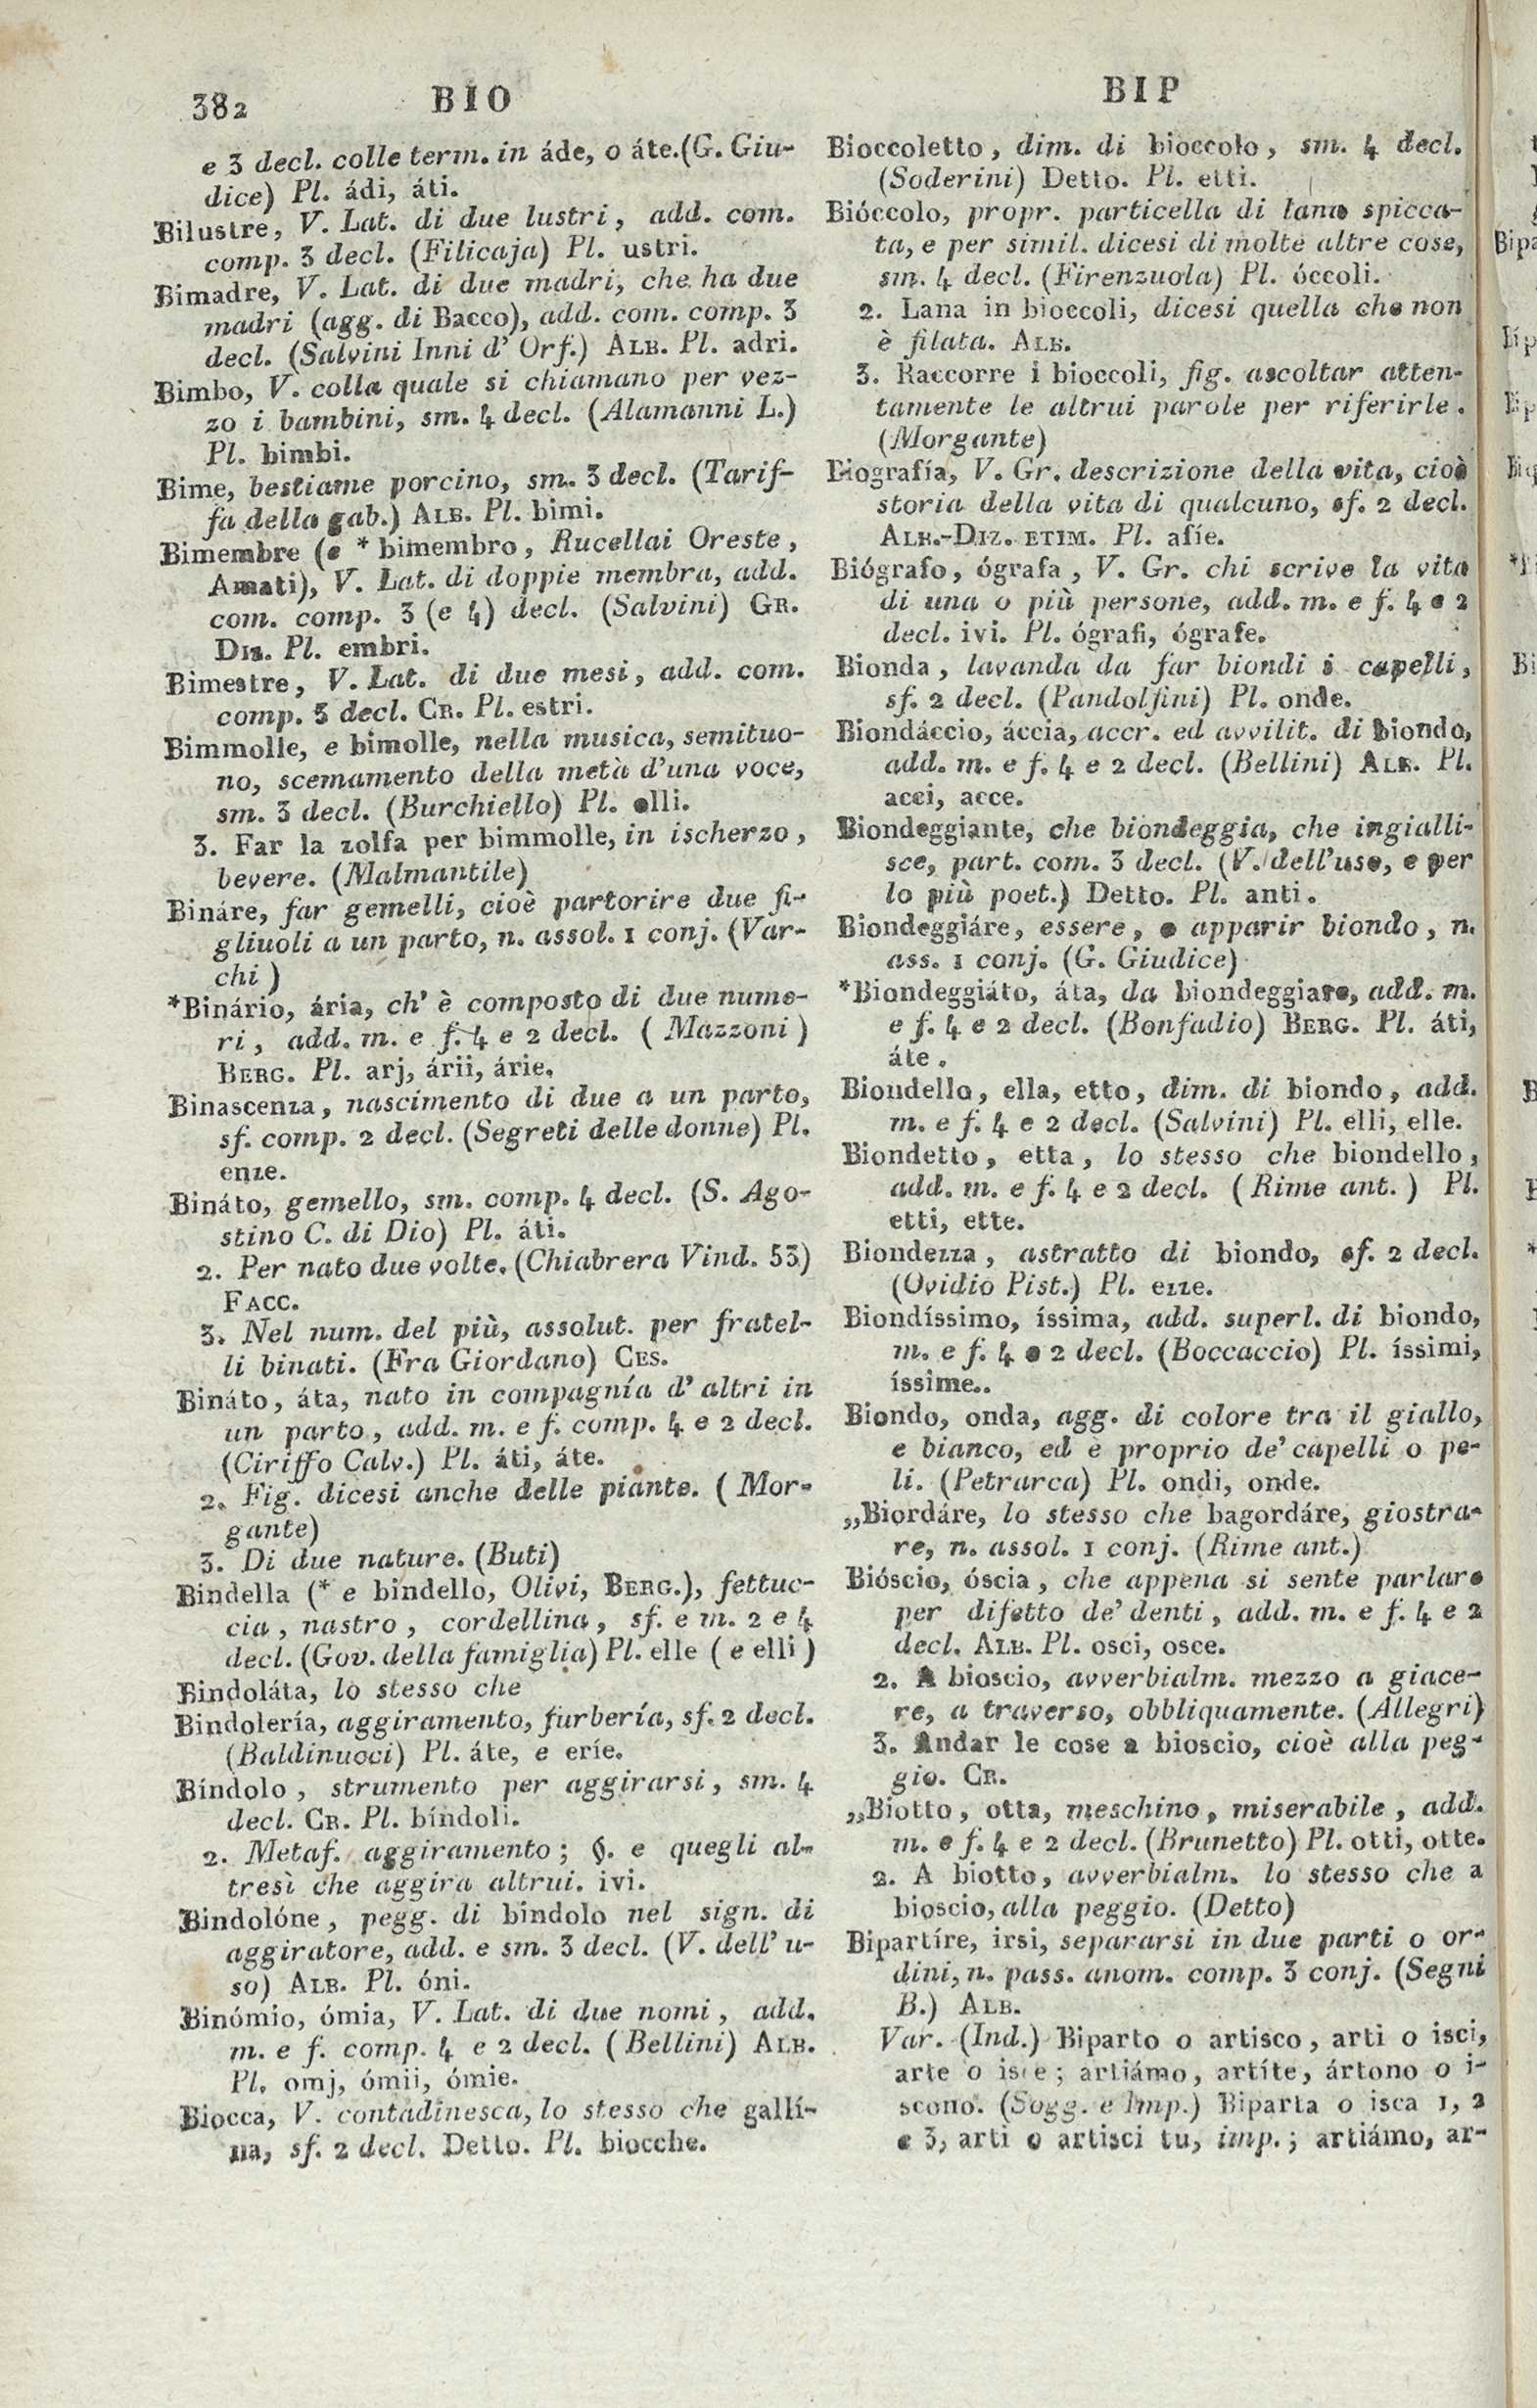 382 BIO
e 3 decl. colle term. in áde, o áte. (G. Giu-
dice) Pl. ádi, áti.
Bilustre, V. Lat. di due lustri, add. com.
comp. 3 decl. (Filicaja) Pl. ustri.
Bimadre, V. Lat. di due madri, che ha due
madri (agg. di Bacco), add. com. comp. 3
decl. (Salvini Inni d' Orf.) ALB. Pl. adri.
Bimbo, V. colla quale si chiamano per vez-
zo i bambini, sm. 4 decl. (Alamanni L.)
Pl. bimbi.
Bime, bestiame porcino, sm. 3 decl. (Tarif-
fa della gab.) ALB. Pl. bimi.
Bimembre (e * bimembro, Rucellai Oreste,
Amati), V. Lat. di doppie membra, add.
com. comp. 3 (e 4) decl. (Salvini) GR.
DIZ. Pl. embri.
Bimestre, V. Lat. di due mesi, add. com.
comp. 3 decl. CR. Pl. estri.
Bimmolle, e bimolle, nella musica, semituo-
no, scemamento della metà d'una voce,
sm. 3 decl. (Burchiello) Pl. olli.
3. Far la zolfa per bimmolle, in ischerzo,
bevere. (Malmantile)
Bináre, far gemelli, cioè partorire due fi-
gliuoli a un parto, n. assol. 1 conj. (Var-
chi)
*Binário, ária, ch' è composto di due nume-
ri, add. m. e f. 4 e 2 decl. (Mazzoni)
BERG. Pl. arj, árii, árie.
Binascenza, nascimento di due a un parto,
sf. comp. 2 decl. (Segreti delle donne) Pl.
enze.
Bináto, gemello, sm. comp. 4 decl. (S. Ago-
stino C. di Dio) Pl. áti.
2. Per nato due volte. (Chiabrera Vind. 53)
FACC.
3. Nel num. del più, assolut. per fratel-
li binati. (Fra Giordano) CES.
Bináto, áta, nato in compagnía d' altri in
un parto, add. m. e f. comp. 4 e 2 decl.
(Ciriffo Calv.) Pl. áti, áte.
2. Fig. dicesi anche delle piante. (Mor-
gante)
3. Di due nature. (Buti)
Bindella (* e bindello, Olivi, BERG.), fettuc-
cia, nastro, cordellina, sf. e m. 2 e 4
decl. (Gov. della famiglia) Pl. elle (e elli)
Bindoláta, lo stesso che
Bindolería, aggiramento, furbería, sf. 2 decl.
(Baldinucci) Pl. áte, e eríe.
Bíndolo, strumento per aggirarsi, sm. 4
decl. CR. Pl. bíndoli.
2. Metaf. aggiramento; §. e quegli al-
tresì che aggira altrui. ivi.
Bindolóne, pegg. di bindolo nel sign. di
aggiratore, add. e sm. 3 decl. (V. dell' u-
so) ALB. Pl. óni.
Binómio, ómia, V. Lat. di due nomi, add.
m. e f. comp. 4 e 2 decl. (Bellini) ALB.
Pl. omj, ómii, ómie.
Biocca, V. contadinesca, lo stesso che gallí-
na, sf. 2 decl. Detto. Pl. biocche.
BIP
Bioccoletto, dim. di bioccolo, sm. 4 decl.
(Soderini) Detto. Pl. etti.
Bióccolo, propr. particella di lana spicca-
ta, e per simil. dicesi di molte altre cose,
sm. 4 decl. (Firenzuola) Pl. óccoli.
2. Lana in bioccoli, dicesi quella che non
è filata. ALB.
3. Raccorre i bioccoli, fig. ascoltar atten-
tamente le altrui parole per riferirle.
(Morgante)
Biografía, V. Gr. descrizione della vita, cioè
storia della vita di qualcuno, sf. 2 decl.
ALB.-DIZ. ETIM. Pl. afíe.
Biógrafo, ógrafa, V. Gr. chi scrive la vita
di una o più persone, add. m. e f. 4 e 2
decl. ivi. Pl. ógrafi, ógrafe.
Bionda, lavanda da far biondi i capelli,
sf. 2 decl. (Pandolfini) Pl. onde.
Biondáccio, áccia, accr. ed avvilit. di biondo,
add. m. e f. 4 e 2 decl. (Bellini) ALB. Pl.
acci, acce.
Biondeggiante, che biondeggia, che ingialli-
sce, part. com. 3 decl. (V. dell'uso, e per
lo più poet.) Detto. Pl. anti.
Biondeggiáre, essere, o apparir biondo, n.
ass. 1 conj. (G. Giudice)
*Biondeggiáto, áta, da biondeggiare, add. m.
e f. 4 e 2 decl. (Bonfadio) BERG. Pl. áti,
áte.
Biondello, ella, etto, dim. di biondo, add.
m. e f. 4 e 2 decl. (Salvini) Pl. elli, elle.
Biondetto, etta, lo stesso che biondello,
add. m. e f. 4 e 2 decl. (Rime ant.) Pl.
etti, ette.
Biondezza, astratto di biondo, sf. 2 decl.
(Ovidio Pist.) Pl. ezze.
Biondíssimo, íssima, add. superl. di biondo,
m. e f. 4 e 2 decl. (Boccaccio) Pl. íssimi,
íssime..
Biondo, onda, agg. di colore tra il giallo,
e bianco, ed è proprio de' capelli o pe-
li. (Petrarca) Pl. ondi, onde.
„Biordáre, lo stesso che bagordáre, giostra-
re, n. assol. 1 conj. (Rime ant.)
Bióscio, óscia, che appena si sente parlare
per difetto de' denti, add. m. e f. 4 e 2
decl. ALB. Pl. osci, osce.
2. A bioscio, avverbialm. mezzo a giace-
re, a traverso, obbliquamente. (Allegri)
3. Andar le cose a bioscio, cioè alla peg-
gio. CR.
„Biotto, otta, meschino, miserabile, add.
m. e f. 4 e 2 decl. (Brunetto) Pl. otti, otte.
2. A biotto, avverbialm. lo stesso che a
bioscio, alla peggio. (Detto)
Bipartíre, irsi, separarsi in due parti o or-
dini, n. pass. anom. comp. 3 conj. (Segni
B.) ALB.
Var. (Ind.) Biparto o artisco, arti o isci,
arte o isce; artiámo, artíte, ártono o i-
scono. (Sogg. e Imp.) Biparta o isca 1, 2
e 3, arti o artisci tu, imp.; artiámo, ar-